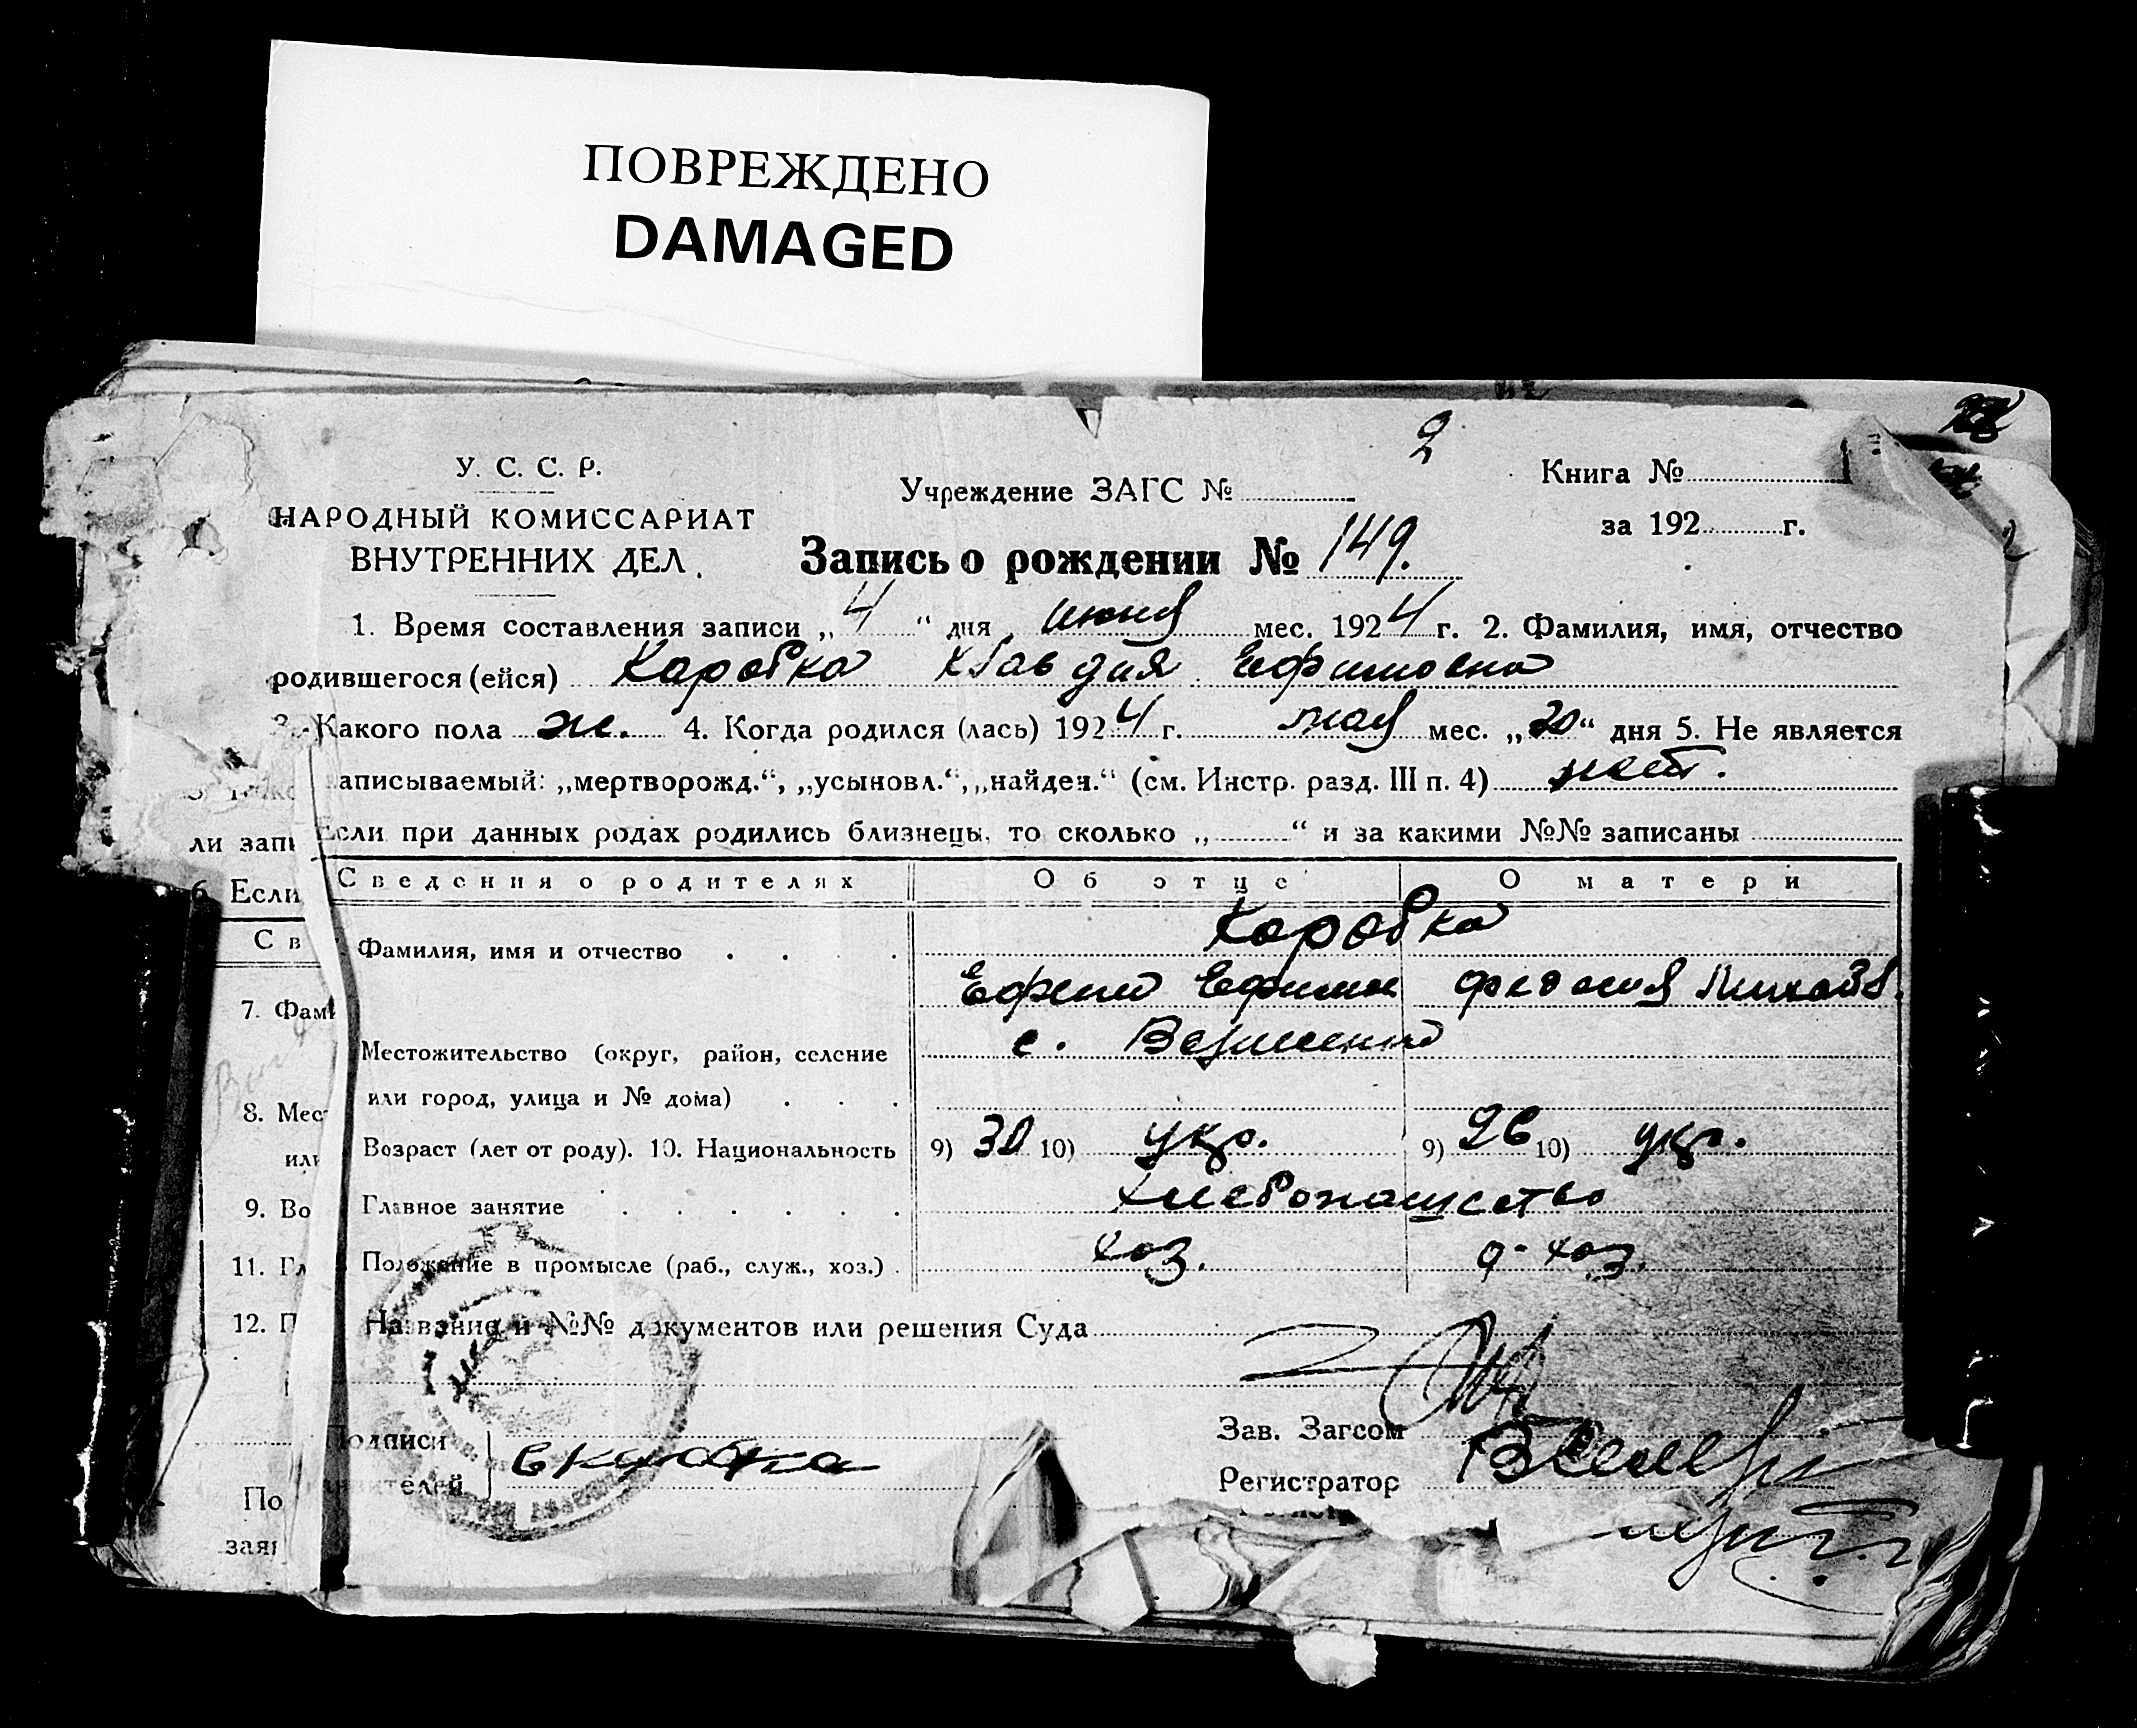 ПОВРЕЖДЕНО
DAMAGED
2
У. С. С. Р.
НАРОДНЫЙ КОМИССАРИАТ
ВНУТРЕННИХ ДЕЛ.
Учреждение ЗАГС №
Книга №
за 192 г.
Запись о рождении № 149.
1. Время составления записи „4“ дня июня мес. 1924 г. 2. Фамилия, имя, отчество
родившегося (ейся) Коробка Клавдия Ефимовна
3. Какого пола ж. 4. Когда родился (лась) 1924 г. мая мес. „20“ дня 5. Не является
записываемый: „мертворожд.“, „усыновл.“, „найден.“ (см. Инстр. разд. III п. 4) нет.
Если при данных родах родились близнецы, то сколько „ “ и за какими №№ записаны
Сведения о родителях Об отце О матери
Коробка
Фамилия, имя и отчество
Ефим Ефимов Федосия Михайл.
Местожительство (округ, район, селение с.
или город, улица и № дома)
Возраст (лет от роду). 10. Национальность 9) 30 10) укр. 9) 26 10) укр.
Главное занятие хлебопашество
Положение в промысле (раб., служ., хоз.) хоз. д-хоз.
Название и №№ документов или решения Суда
Зав. Загсом
Подписи
заявителей
Регистратор
ли запи
6. Если
Св
7. Фам
8. Мест
или
9. Во
11. Гл
12. П
По
заяв